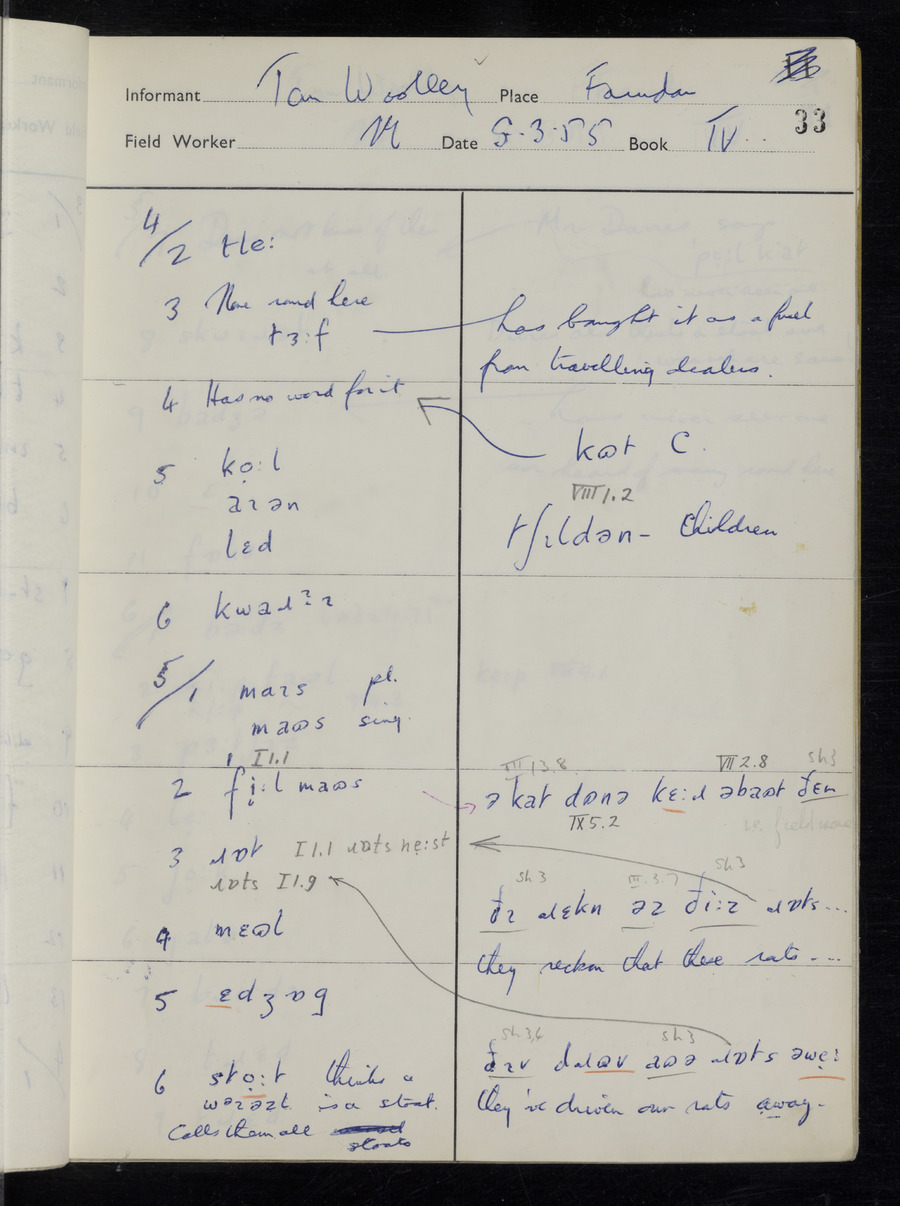 Informant Tom Woolley Place Farndon
33
Field Worker Date 5.3.55 Book IV
4/2 tle:
3 None round here
tɜ:f
has bought it as a fuel
from travelling dealers.
4 Has no word for it
kɷt C.
5 kọ:l
VIII 1.2
aɪən
tʃɪldən – Children
lɛd
6 kwaɹʔɪ
5/1 maɪs pl.
maɷs sing.
I 1.1
2 fi̞:l maɷs
III 13.8 VII 2.8 sh3
ə kat dɒnə kɛ:ɹ əbaɷt ðɛm
IX 5.2
3 ɹɒt I 1.1 ɹɒts nẹ:st
ɹɒts I 1.9
sh3 III.3.7 sh3
ðɪ ɹɛkn əɪ ði:z ɹɒts...
4 mɛɷl
they reckon that these rats ....
5 ɛdʒɒg
sh3,4 sh3
ðɪv dɹɪv aɷə ɹɒts əwẹ:
6 stọ:t thinks a
is a stoat.
they've driven our rats away.
Calls them all
stoats